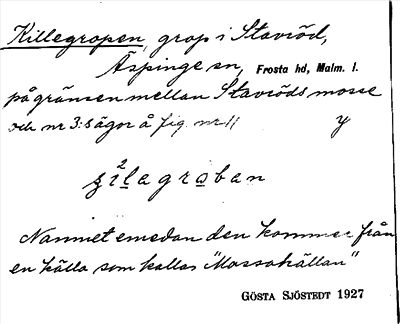 Killegropen, grop i Staviöd,
Äspinge sn, Frosta hd, Malm. l.
på gränsen mellan Staviöds mosse
och nr 3:s ägor å fig. nr 11 y
Namnet emedan den kommer från
en källa som kallas "Mossakällan"
GÖSTA SJÖSTEDT 1927